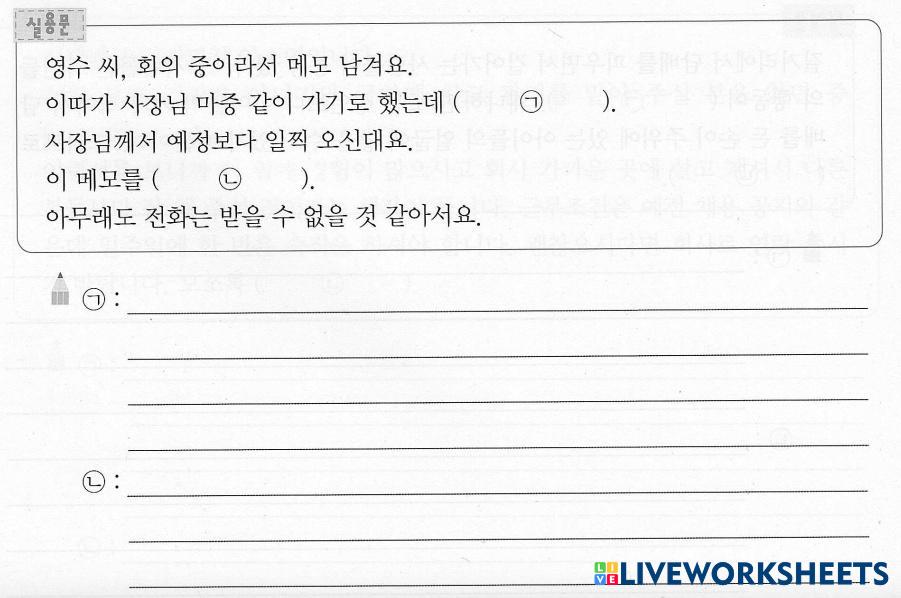 실용문
영수 씨, 회의 중이라서 메모 남겨요.
이따가 사장님 마중 같이 가기로 했는데 ( ㉠ ).
사장님께서 예정보다 일찍 오신대요.
이 메모를 ( ㉡ ).
아무래도 전화는 받을 수 없을 것 같아서요.
㉠ :
㉡ :
LIVEWORKSHEETS